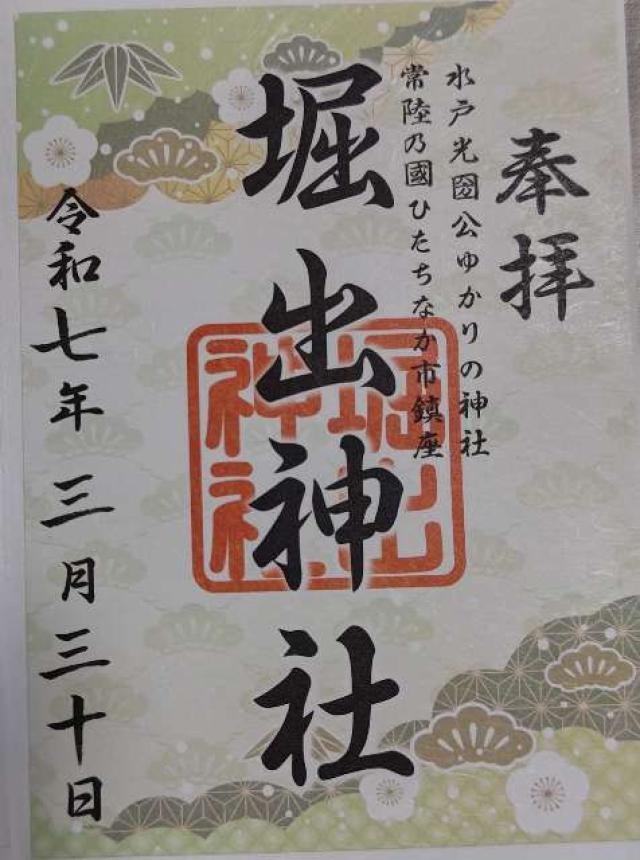 奉拝
水戸光圀公ゆかりの神社
常陸乃國ひたちなか市鎮座
堀出神社
堀出
神社
令和七年三月三十日